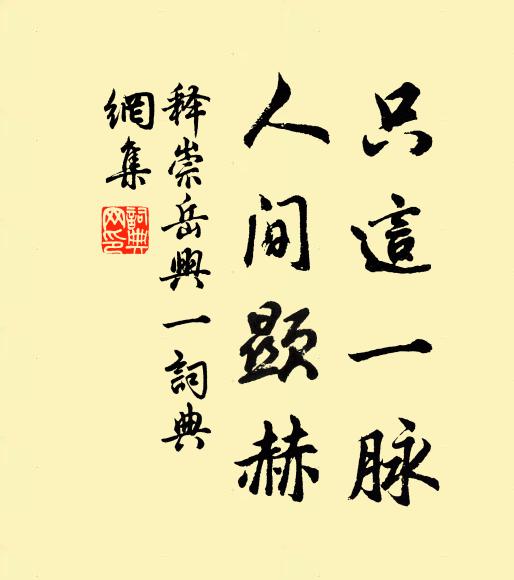 只這一脉
人間顯赫
释崇岳與一詞典
網集
詞典
网印